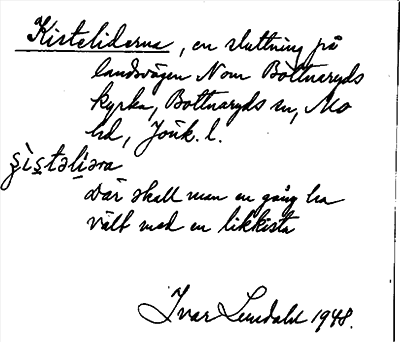 Kisteliderna, en sluttning på
landsvägen N om Bottnaryds
kyrka, Bottnaryds sn, Mo
hd, Jönk. l.
şìstəlìəra
där skall man en gång ha
vält med en likkista
Ivar Lundahl 1948.